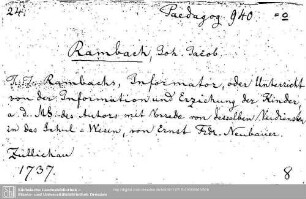 24. Paedagog 940 =2
Rambach, Joh. Jacob
J. J. Rambachs, Informator, oder Unterricht
von der Information und Erziehung der Kinder
a. d. MS. des Autors mit Vorrede von desselben Verdiensten
in das Schul-Wesen, von Ernst Fdr. Neubauer.
Züllichau
1737. 8